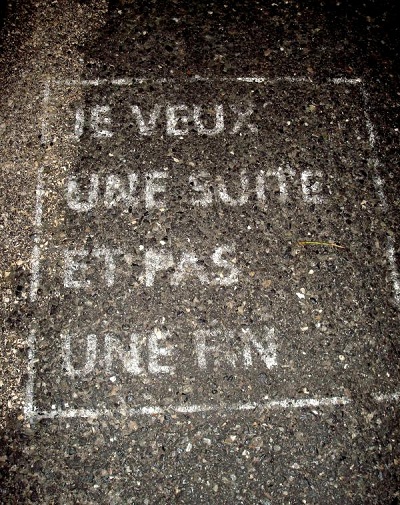 JE VEUX
UNE SUITE
ET PAS
UNE FIN